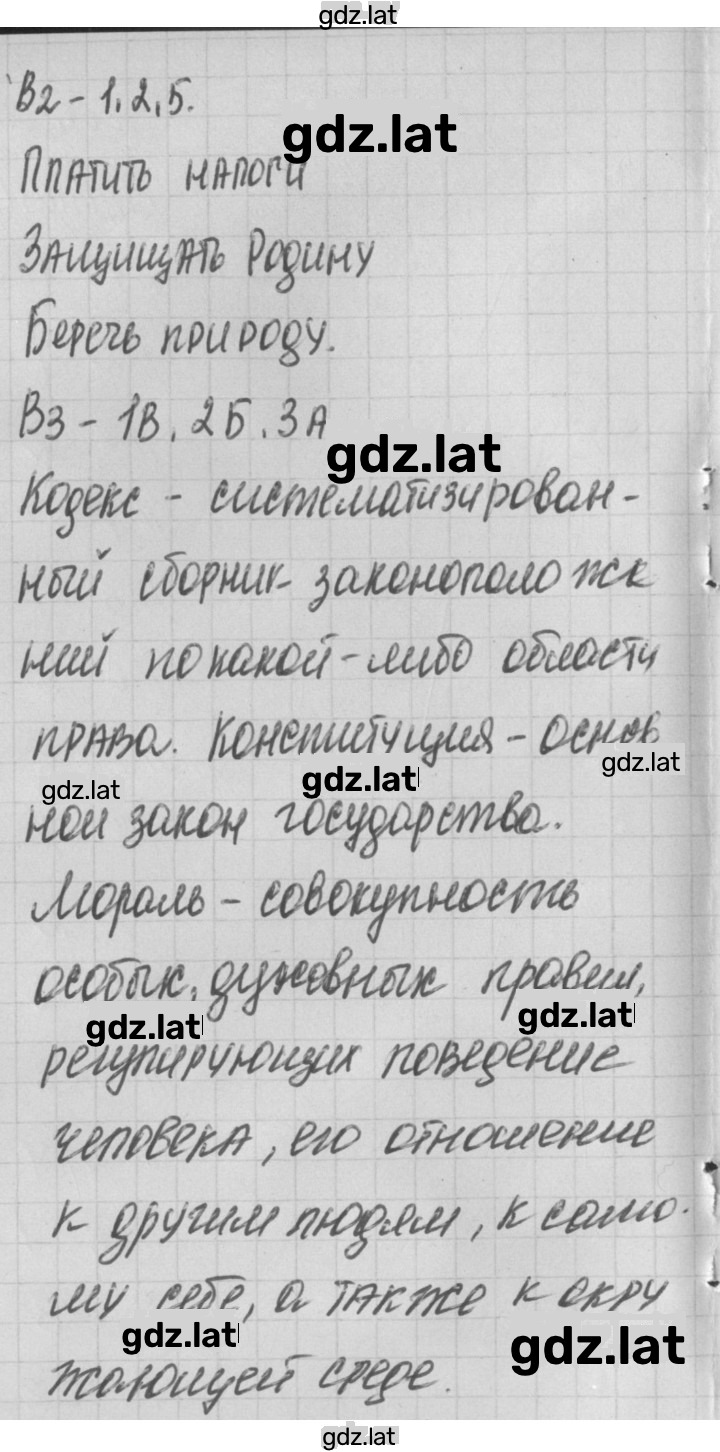 gdz.lat
В2 - 1, 2, 5.
gdz.lat
Платить налоги
Защищать Родину
Беречь природу.
В3 - 1В, 2Б, 3А
gdz.lat
Кодекс - систематизирован-
ный сборник законоположе
ний по какой-либо области
права. Конституция - основ
gdz.lat gdz.lat gdz.lat
ной закон государства.
Мораль - совокупность
особых, духовных правил,
gdz.lat gdz.lat
регулирующих поведение
человека, его отношение
к другим людям, к само-
му себе, а также к окру
gdz.lat gdz.lat
жающей среде.
gdz.lat